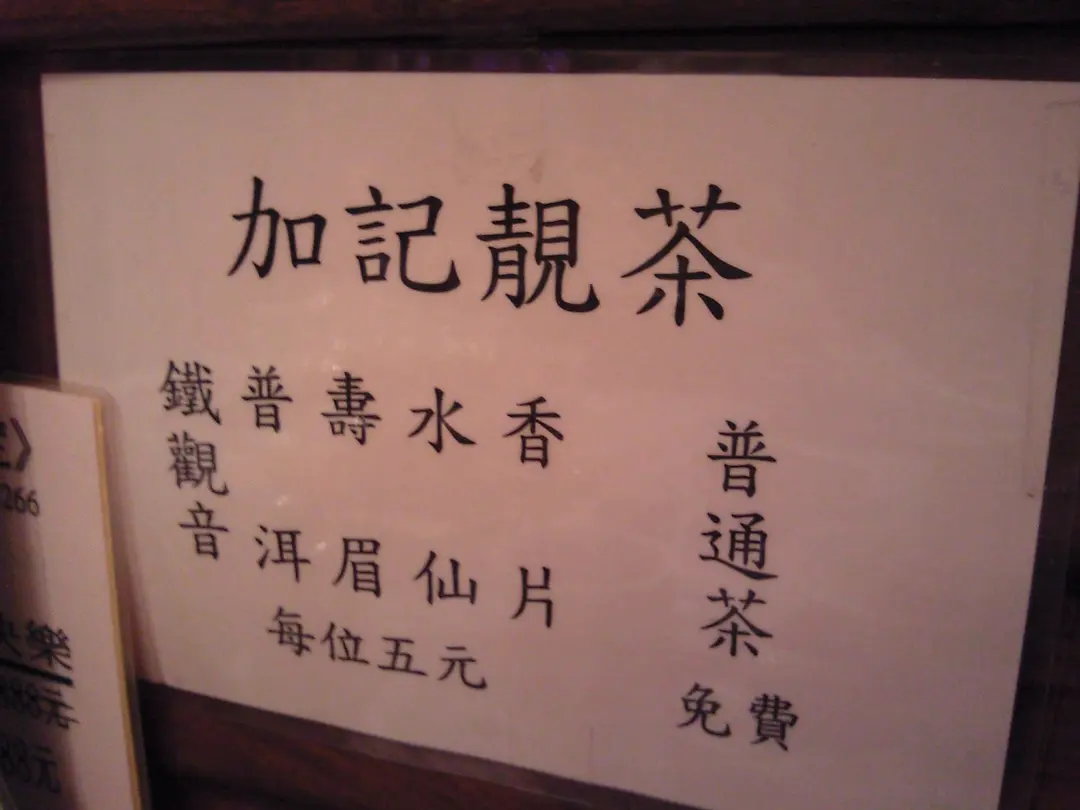 加記靚茶
普通茶
免費
香片
水仙
壽眉
普洱
鐵觀音
每位五元
》
266
樂
88元
88元